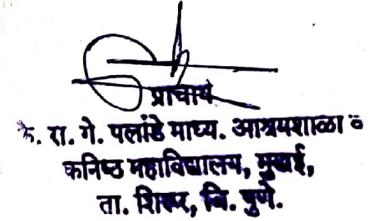 प्राचार्य
कै. रा. गे. पलांडे माध्य. आश्रमशाळा व
कनिष्ठ महाविद्यालय, मुखई,
ता. शिरूर, जि. पुणे.